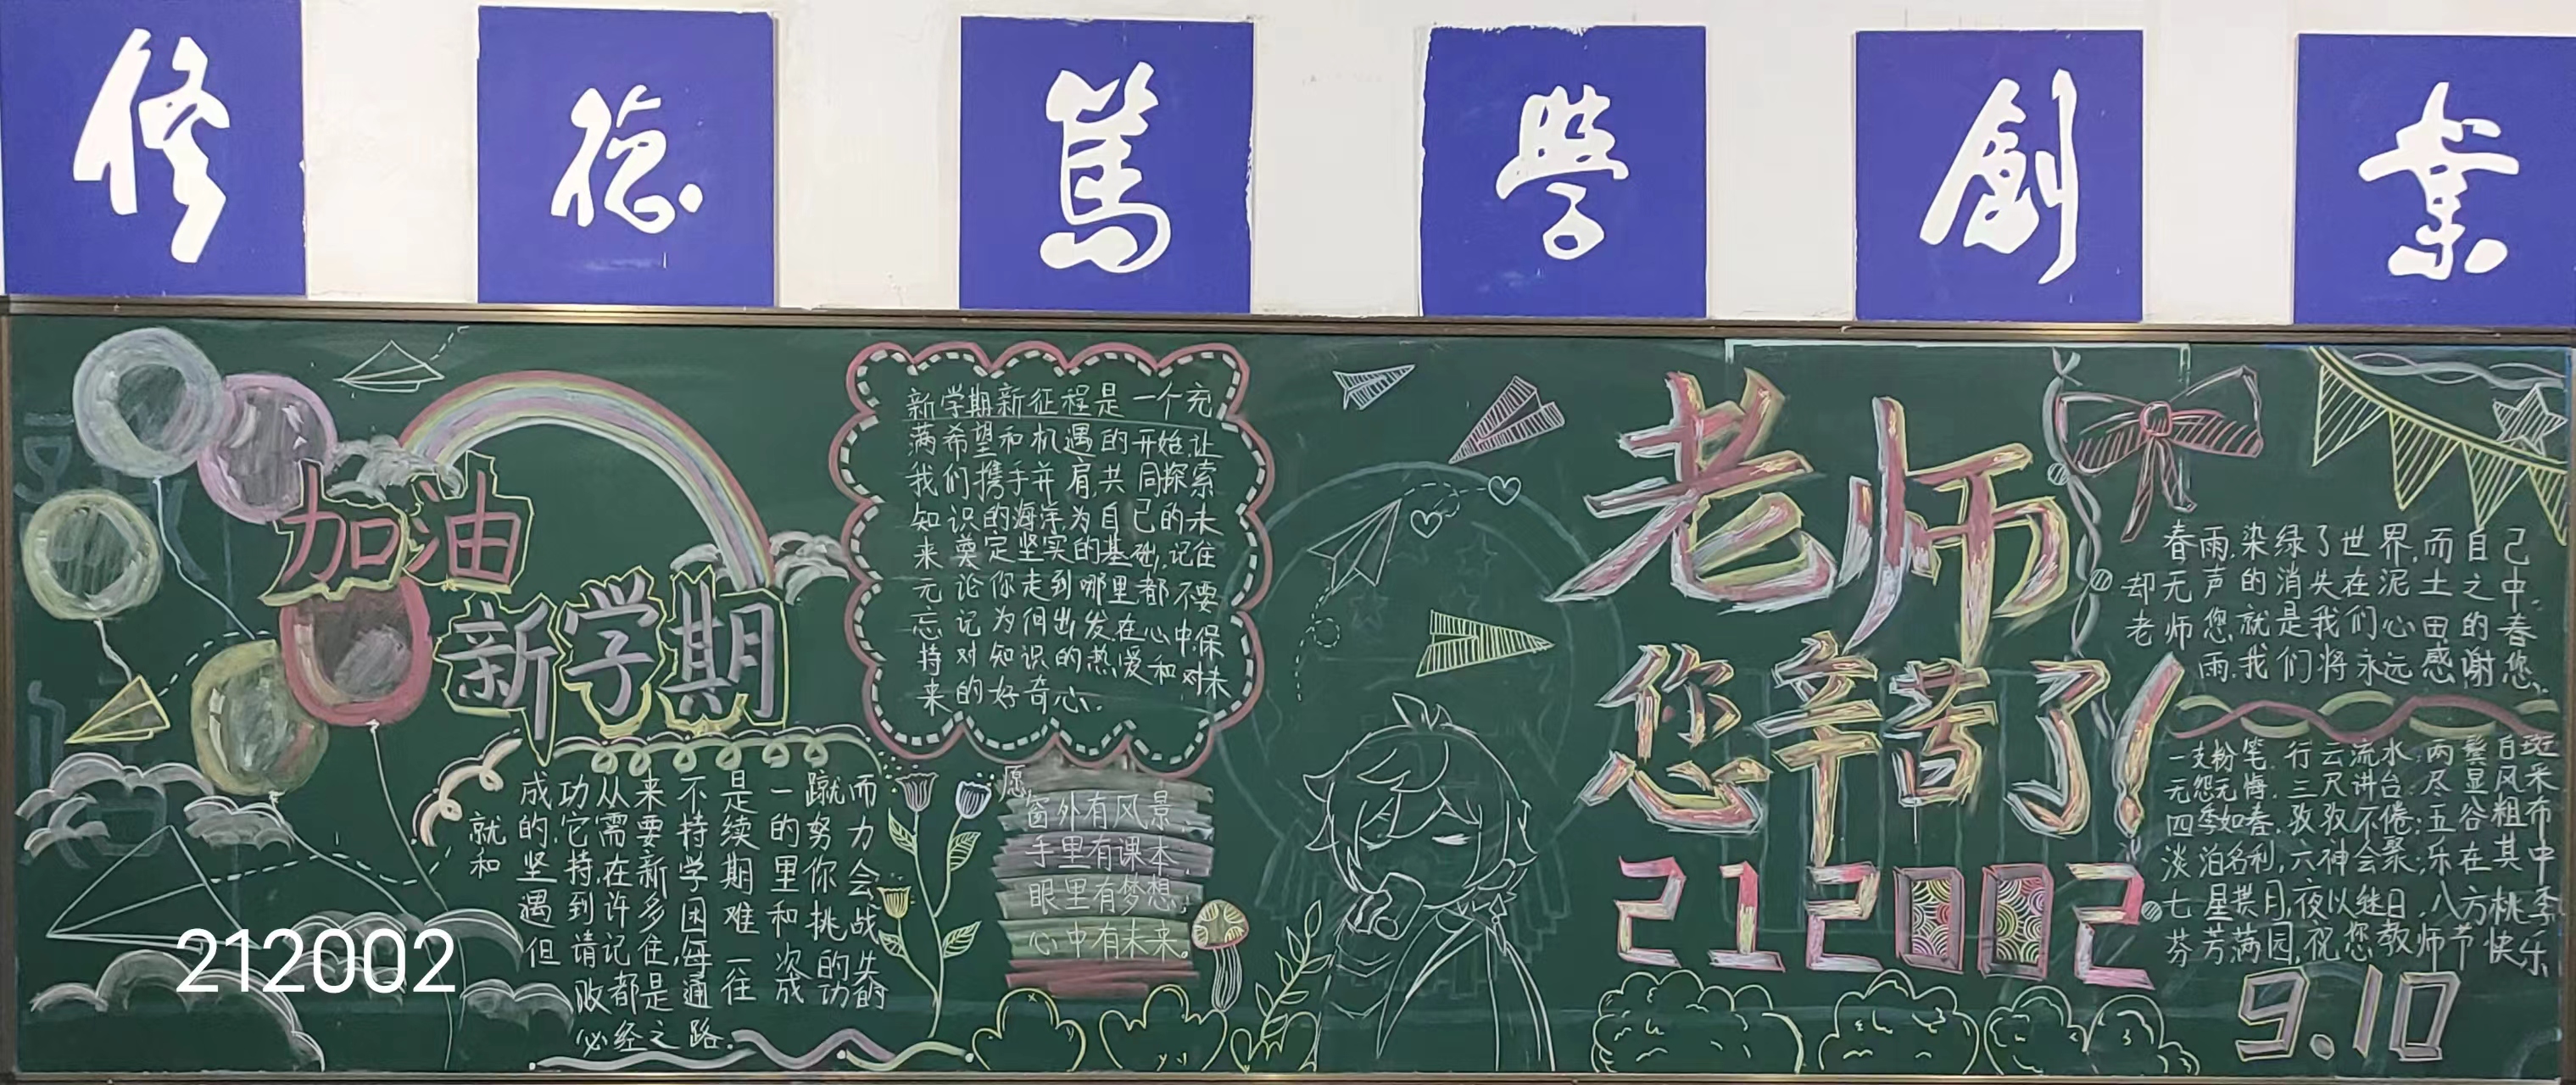 修 德 篤 學 創 業
加油
新学期
成功从来不是一蹴而
就的,它需要持续的努力
和坚持,在新学期里你会
遇到许多困难和挑战
但请记住,每一次的失
败都是通往成功的
必经之路.
新学期新征程是一个充
满希望和机遇的开始,让
我们携手并肩,共同探索
知识的海洋,为自己的未
来奠定坚实的基础,记住
无论你走到哪里都不要
忘记为何出发在心中保
持对知识的热爱和对未
来的好奇心.
愿
窗外有风景,
手里有课本,
眼里有梦想,
心中有未来。
老师
您辛苦了!
212002
春雨,染绿了世界,而自己
却无声的消失在泥土之中,
老师您就是我们心田的春
雨,我们将永远感谢您.
一支粉笔,行云流水;两鬓白斑
无怨无悔,三尺讲台;尽显风采
四季如春,孜孜不倦;五谷粗布
淡泊名利,六神会聚;乐在其中
七星拱月,夜以继日,八方桃李
芬芳满园,祝您教师节快乐
9.10
212002